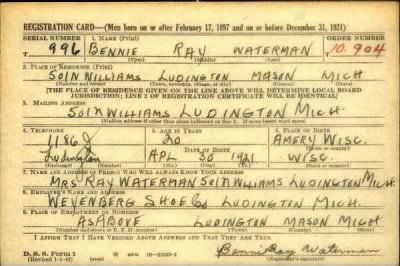 REGISTRATION CARD—(Men born on or after February 17, 1897 and on or before December 31, 1921)
SERIAL NUMBER 1. NAME (Print) ORDER NUMBER
996 BENNIE RAY WATERMAN 10.904
(First) (Middle) (Last)
2. PLACE OF RESIDENCE (Print)
501N WILLIAMS LUDINGTON MASON MICH
(Number and street) (Town, township, village, or city) (County) (State)
[THE PLACE OF RESIDENCE GIVEN ON THE LINE ABOVE WILL DETERMINE LOCAL BOARD
JURISDICTION; LINE 2 OF REGISTRATION CERTIFICATE WILL BE IDENTICAL]
3. MAILING ADDRESS
501N WILLIAMS LUDINGTON MICH.
[Mailing address if other than place indicated on line 2. If same insert word same]
4. TELEPHONE 5. AGE IN YEARS 6. PLACE OF BIRTH
1186J 20 AMERY WISC.
DATE OF BIRTH
Ludington APL 30 1921 WISC.
7. NAME AND ADDRESS OF PERSON WHO WILL ALWAYS KNOW YOUR ADDRESS
MRS RAY WATERMAN 501N WILLIAMS LUDINGTON MICH.
8. EMPLOYER'S NAME AND ADDRESS
WEYENBERG SHOE Co LUDINGTON MICH
9. PLACE OF EMPLOYMENT OR BUSINESS
AS ABOVE LUDINGTON MASON MICH
(Number and street or R. F. D. number) (Town) (County) (State)
I AFFIRM THAT I HAVE VERIFIED ABOVE ANSWERS AND THAT THEY ARE TRUE.
D. S. S. Form 1
(Revised 1-1-42) (over)
Bennie Ray Waterman